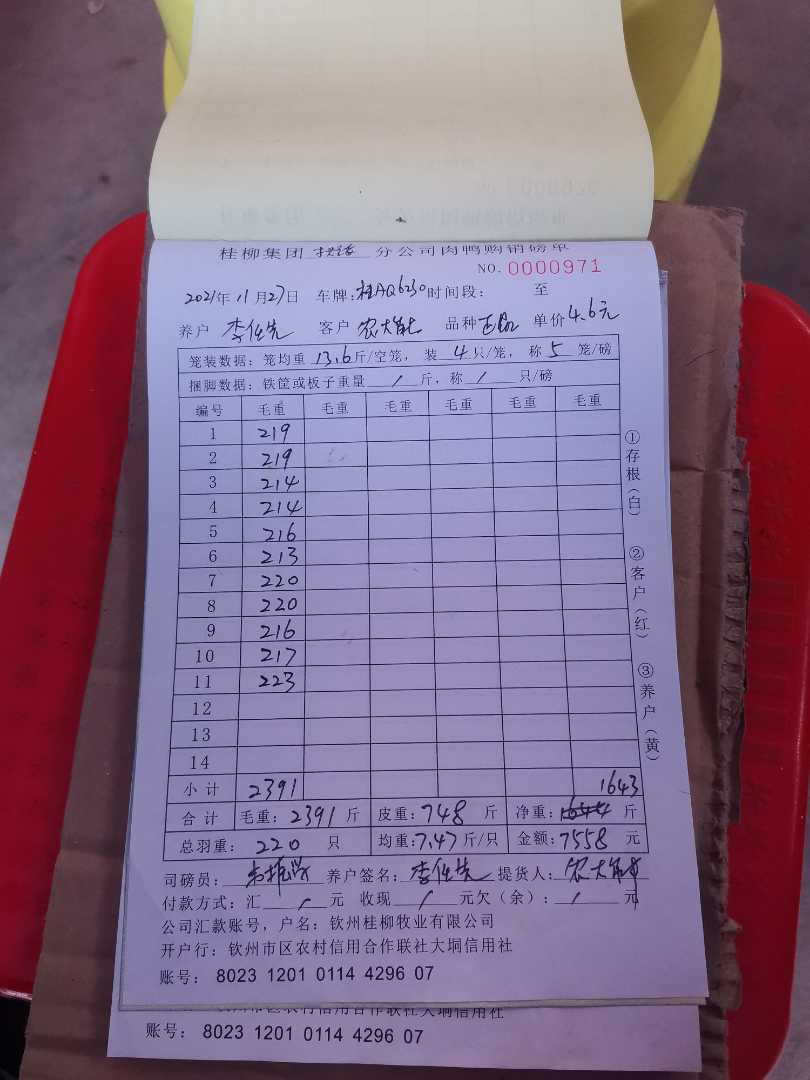 桂柳集团 分公司肉鸭购销磅单
NO. 0000971
2021年11月27日 车牌:桂AQ6230时间段: 至
养户 李任先 客户 农大 品种 单价4.6元
笼装数据:笼均重 13.6斤/空笼, 装 4只/笼, 称5 笼/磅
捆脚数据:铁筐或板子重量 / 斤,称 / 只/磅
编号 毛重 毛重 毛重 毛重 毛重 毛重
1 219
2 219
3 214
4 214
5 216
6 213
7 220
8 220
9 216
10 217
11 223
12
13
14
小计 2391 1643
合计 毛重:2391斤 皮重:748 斤 净重:1644 斤
总羽重:220 只 均重:7.47斤/只 金额:7558 元
①存根(白)
②客户(红)
③养户(黄)
司磅员: 养户签名:李任先 提货人:农大
付款方式:汇 / 元 收现 / 元欠(余): / 元
公司汇款账号,户名:钦州桂柳牧业有限公司
开户行:钦州市区农村信用合作联社大垌信用社
账号: 8023 1201 0114 4296 07
钦州市区农村信用合作联社大垌信用社
账号: 8023 1201 0114 4296 07